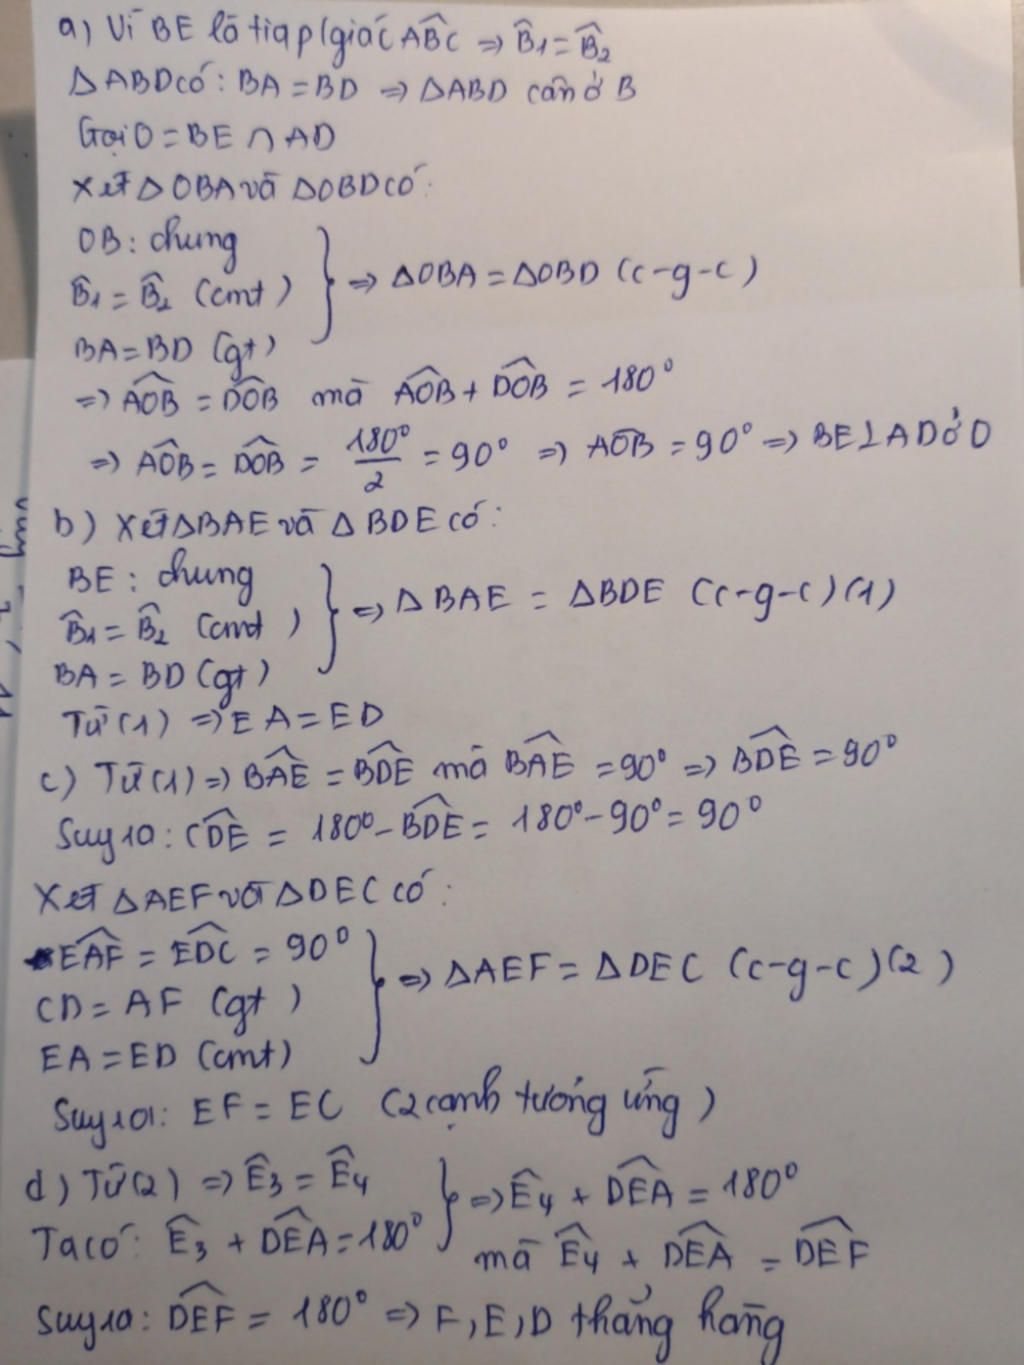 a) Vì BE là tia p/giác ABC ⇒ B̂1 = B̂2
Δ ABD có: BA = BD ⇒ ΔABD cân ở B
Gọi O = BE ∩ AD
Xét Δ OBA và ΔOBD có:
OB: chung
B̂1 = B̂2 (cmt) } ⇒ ΔOBA = ΔOBD (c-g-c)
BA = BD (gt)
⇒ AOB = DOB mà AOB + DOB = 180°
⇒ AOB = DOB = 180°/2 = 90° ⇒ AOB = 90° ⇒ BE⊥AD ở O
b) Xét ΔBAE và Δ BDE có:
BE: chung
B̂1 = B̂2 (cmt) } ⇒ Δ BAE = ΔBDE (c-g-c) (1)
BA = BD (gt)
Từ (1) ⇒ EA = ED
c) Từ (1) ⇒ BAE = BDE mà BAE = 90° ⇒ BDE = 90°
Suy ra: CDE = 180° - BDE = 180° - 90° = 90°
Xét ΔAEF và ΔDEC có:
EAF = EDC = 90°
CD = AF (gt) } ⇒ ΔAEF = ΔDEC (c-g-c) (2)
EA = ED (cmt)
Suy ra: EF = EC (2 cạnh tương ứng)
d) Từ (2) ⇒ Ê3 = Ê4 } ⇒ Ê4 + DEA = 180°
Ta có: Ê3 + DEA = 180° mà Ê4 + DEA = DEF
Suy ra: DEF = 180° ⇒ F, E, D thẳng hàng